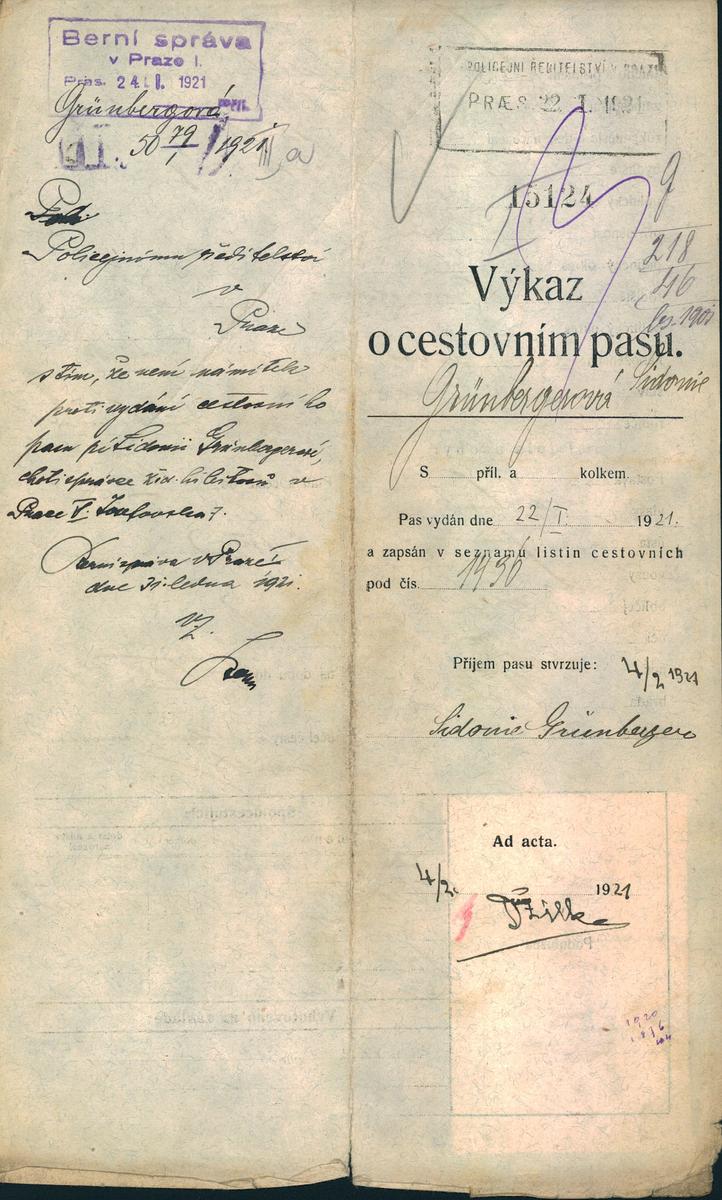 Berní správa
v Praze I.
Präs. 24. I. 1921
Grünbergová
50 79/1 1921
Policejnímu ředitelství
v
Praze
s tím, že není námitek
proti vydání cestovního
pasu pí Sidonii Grünbergerové,
choti správce žid. hřbitovů v
Praze V.
Berní správa v Praze I
dne 31. ledna 1921.
VZ.
POLICEJNÍ ŘEDITELSTVÍ V PRAZE
PRÆS. 22. I. 1921
15124
9
218
46
Výkaz
o cestovním pasu.
Grünbergerová Sidonie
S příl. a kolkem.
Pas vydán dne 22/I. 1921.
a zapsán v seznamu listin cestovních
pod čís. 1930
Příjem pasu stvrzuje: 4/2 1921
Sidonie Grünbergero
Ad acta.
4/2. 1921